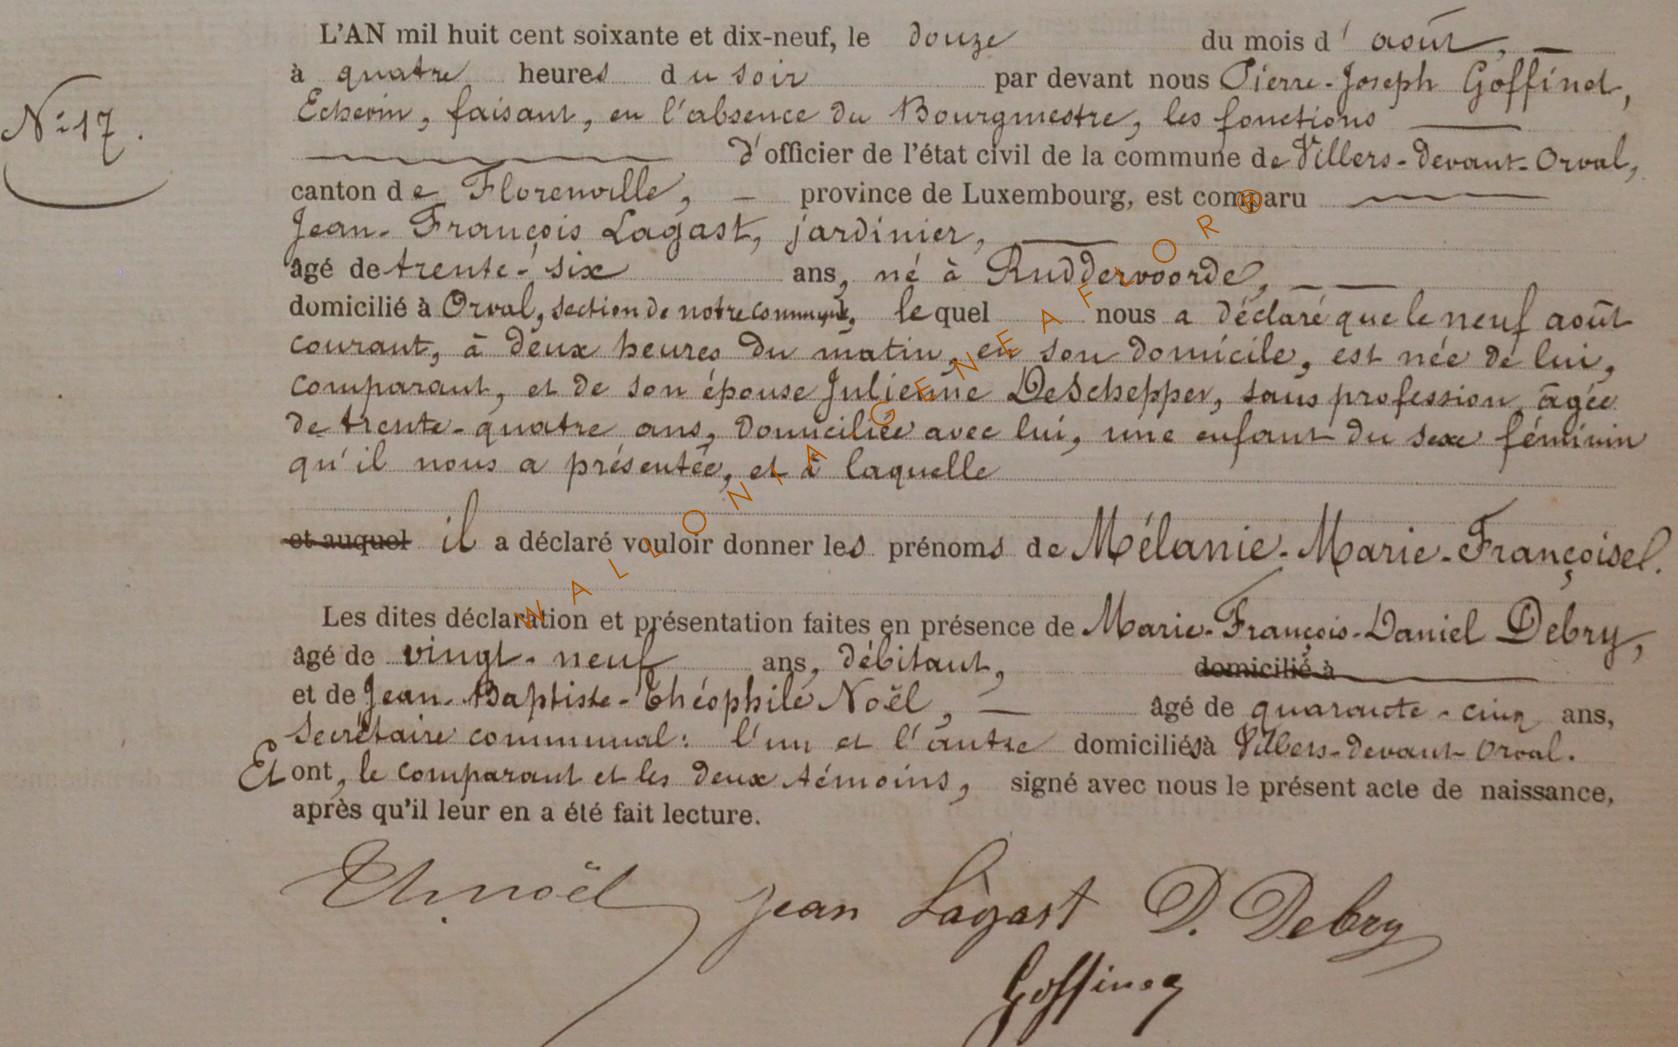 L'AN mil huit cent soixante et dix-neuf, le douze du mois d' août,
à quatre heures du soir par devant nous Pierre-Joseph Goffinet,
Echevin, faisant, en l'absence du Bourgmestre, les fonctions
N° 17.
d'officier de l'état civil de la commune de Villers-devant-Orval,
canton de Florenville, province de Luxembourg, est comparu
Jean-François Lagast, jardinier,
âgé de trente-six ans, né à Ruddervoorde,
domicilié à Orval, section de notre commune, lequel nous a déclaré que le neuf août
courant, à deux heures du matin, en son domicile, est née de lui,
comparant, et de son épouse Julienne DeSchepper, sans profession, âgée
de trente-quatre ans, domiciliée avec lui, une enfant du sexe féminin
qu'il nous a présentée, et à laquelle
et auquel il a déclaré vouloir donner les prénoms de Mélanie-Marie-Françoise.
Les dites déclaration et présentation faites en présence de Marie-François-Daniel Debry,
âgé de vingt-neuf ans, débitant, domicilié à
et de Jean-Baptiste-Théophile Noël, âgé de quarante-cinq ans,
Secrétaire communal: l'un et l'autre domiciliés à Villers-devant-Orval.
Et ont, le comparant et les deux témoins, signé avec nous le présent acte de naissance,
après qu'il leur en a été fait lecture.
Th. Noël Jean Lagast D. Debry
Goffinet
WALLONIA GENEAFLOR ®